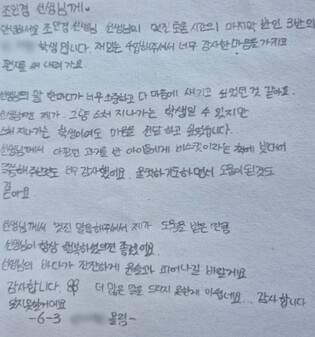 조인경 선생님께♡
안녕하세요 조인경 선생님, 선생님의 멋진 도움 시간의 마지막 반인 3반의
학생입니다. 재밌는 수업해주셔서 너무 감사한 마음을 가지고
편지를 써 내려가요.
선생님의 말 한마디가 너무 소중하고 다 마음에 새기고 싶었던 것 같아요.
선생님에겐 제가 그냥 스쳐 지나가는 학생일 수 있지만
스쳐 지나가는 학생이여도 마음을 전달하고 싶었습니다.
선생님께서 아팠던 과거를 반 아이들에게 비스킷이라는 책에 빗대어
말해주셔서 너무 감사했어요. 울컥하기도 하면서 도움이 된 것도
같아요
선생님께서 멋진 말을 해주셔서 제가 도움을 받은 만큼
선생님이 항상 행복하셨으면 좋겠어요.
선생님의 바다가 잔잔하게 윤슬과 피어나길 바랄게요
감사합니다. 더 많은 말을 드리지 못한게 아쉽네요... 감사합니다
잊지못할거에요
-6-3 올림-